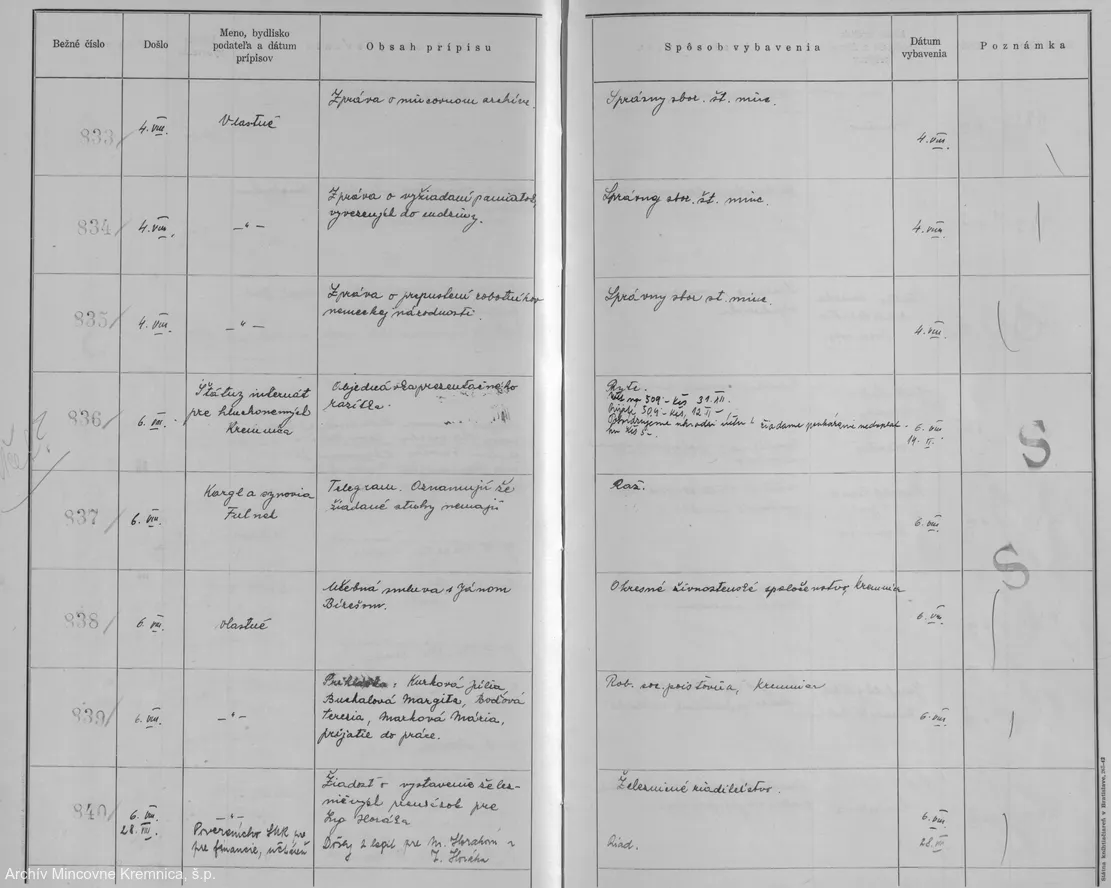 Bežné číslo
Došlo
Meno, bydlisko
podateľa a dátum
prípisov
Obsah prípisu
Spôsob vybavenia
Dátum
vybavenia
Poznámka
833/
4. VIII.
Vlastné
Zpráva o mincovnom archíve.
Správny sbor. št. minc.
4. VIII.
834/
4. VIII.
—"—
Zpráva o vyžiadaní pamiatok
vyvezených do cudziny.
Správny sbor. št. minc.
4. VIII.
835/
4. VIII.
—"—
Zpráva o prepustení robotníkov
nemeckej národnosti.
Správny sbor št. minc.
4. VIII.
836/
6. VIII.
Štátny internát
pre hluchonemých
Kremnica
Objednávka prezentačného
razítka.
Ryte.
509.- Kčs 31. XII.
504.- Kčs, 12 II –
žiadame poukázanie nedoplat.
Kčs 5 –.
6. VIII
14. II.
S
837/
6. VIII.
Kargl a synovia
Fulnek
Telegram. Oznamujú že
žiadané stuhy nemajú
Raž.
6. VIII
838/
6. VIII.
Vlastné
Učebná smluva s Jánom
Birešom.
Okresné živnostenské spoločenstvo, Kremnica
6. VIII.
S
839/
6. VIII.
—"—
Prihláška: Kurková Júlia
Buchalová Margita, Boďová
Terezia, Marková Mária,
prijatie do práce.
Rob. soc. poisťovňa, Kremnica
6. VIII.
840/
6. VIII.
28. VIII.
—"—
Poverníctvo SNR
pre financie, učtáreň
Žiadosť o vystavenie želez-
ničných preukazok pre
Ing Horáka
Došly 2 legit pre M. Horákovú a
Z. Horáka
Železničné riaditeľstvo.
Riad.
6. VIII.
28. VIII
Státna knihtlačiareň v Bratislave, 267-42
Archív Mincovne Kremnica, š.p.